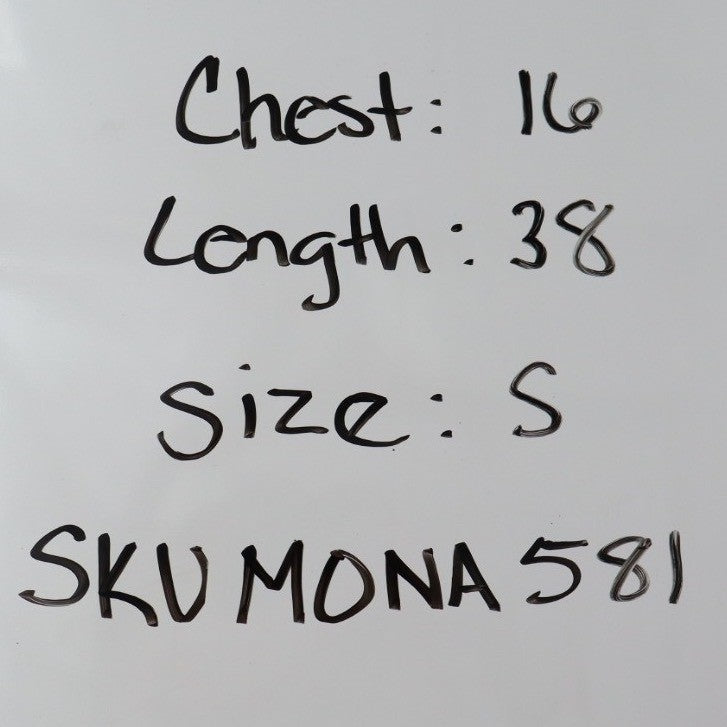 Chest: 16
Length: 38
Size: S
SKU MONA 581